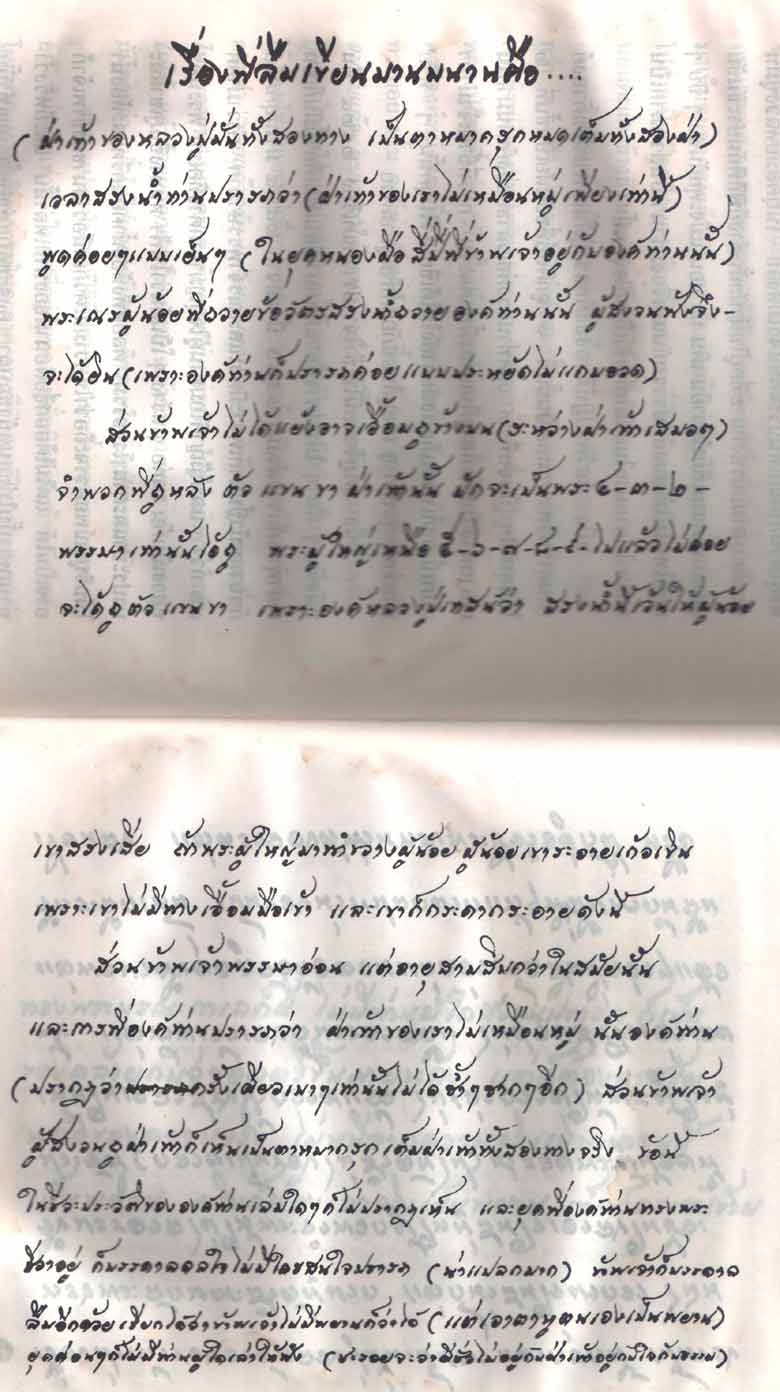 เรื่องที่ลืมเขียนมานมนานคือ....
(ฝ่าเท้าของหลวงปู่มั่นทั้งสองทาง เป็นตาหมากรุกหมดเต็มทั้งสองฝ่า)
เวลาสรงน้ำท่านปรารภว่า (ฝ่าเท้าของเราไม่เหมือนหมู่เพียงเท่านี้)
พูดค่อยๆแบบเย็นๆ (ในยุคหนองผือสี่ปีที่ข้าพเจ้าอยู่กับองค์ท่านนั้น)
พระเณรผู้น้อยที่ถวายข้อวัตรสรงน้ำถวายองค์ท่านนั้น ผู้สงวนฟังจึง-
จะได้ยิน (เพราะองค์ท่านก็ปรารภค่อยแบบประหยัดไม่แกมอวด)
ส่วนข้าพเจ้าไม่ได้แย้งอาจเอื้อมถูข้างบน (ระหว่างฝ่าเท้าเสมอๆ)
จำพวกที่ถูหลัง ตัว แขน ขา ฝ่าเท้านั้น มักจะเป็นพระ ๔-๓-๒-
พรรษาเท่านั้นได้ถู พระผู้ใหญ่เหนือ ๕-๖-๗-๘-๙-ไปแล้วไม่ค่อย
จะได้ถูตัว แขน ขา เพราะองค์หลวงปู่เทศน์ว่า สรงน้ำนี้เว้นให้ผู้น้อย
เขาสรงเสีย ถ้าพระผู้ใหญ่มาทำขวางผู้น้อย ผู้น้อยเขาระอายเก้อเขิน
เพราะเขาไม่มีทางเอื้อมมือเข้า และเขาก็กระดากระอายดังนี้
ส่วนข้าพเจ้าพรรษาอ่อน แต่อายุสามสิบกว่าในสมัยนั้น
และการที่องค์ท่านปรารภว่า ฝ่าเท้าของเราไม่เหมือนหมู่ นั้นองค์ท่าน
(ปรากฏว่าครั้งเดียวเบาๆเท่านั้นไม่ได้ซ้ำๆซากๆอีก) ส่วนข้าพเจ้า
ผู้สงวนถูฝ่าเท้าก็เห็นเป็นตาหมากรุกเต็มฝ่าเท้าทั้งสองทางจริง ข้อนี้
ในชีวะประวัติขององค์ท่านเล่มใดๆก็ไม่ปรากฏเห็น และยุคที่องค์ท่านทรงพระ
ชีวาอยู่ ก็บรรดาลดลใจไม่มีใครสนใจปรารภ (น่าแปลกมาก) ข้าพเจ้าก็บรรดาล
ลืมอีกด้วย เรียกได้ว่าข้าพเจ้าไม่มีพยานก็ว่าได้ (แต่เอาตาหูตนเองเป็นพยาน)
ยุคต่อนๆก็ไม่มีท่านผู้ใดเล่าให้ฟัง (ชะรอยจะว่าดีชั่วไม่อยู่กับฝ่าเท้าอยู่กับใจกับธรรม)